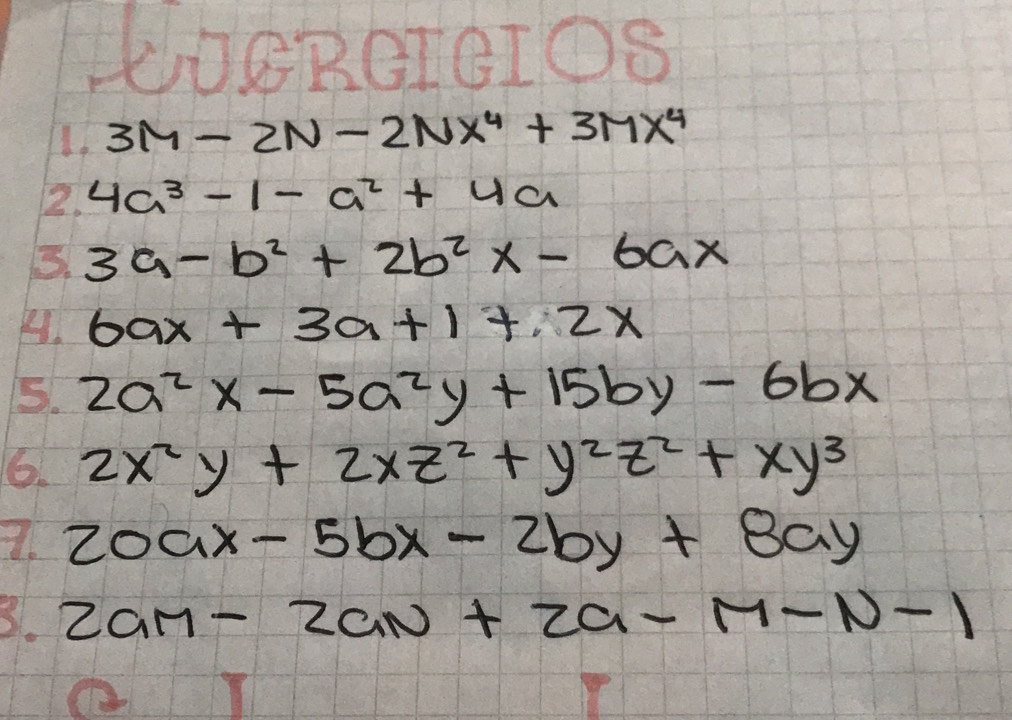 EJERCICIOS
1. 3M - 2N - 2Nx⁴ + 3Mx⁴
2. 4a³ - 1 - a² + 4a
3. 3a - b² + 2b² x - 6ax
4. 6ax + 3a + 1 + 2x
5. 2a² x - 5a²y + 15by - 6bx
6. 2x²y + 2xz² + y²z² + xy³
7. 20ax - 5bx - 2by + 8ay
8. 2aM - 2aN + 2a - M - N - 1